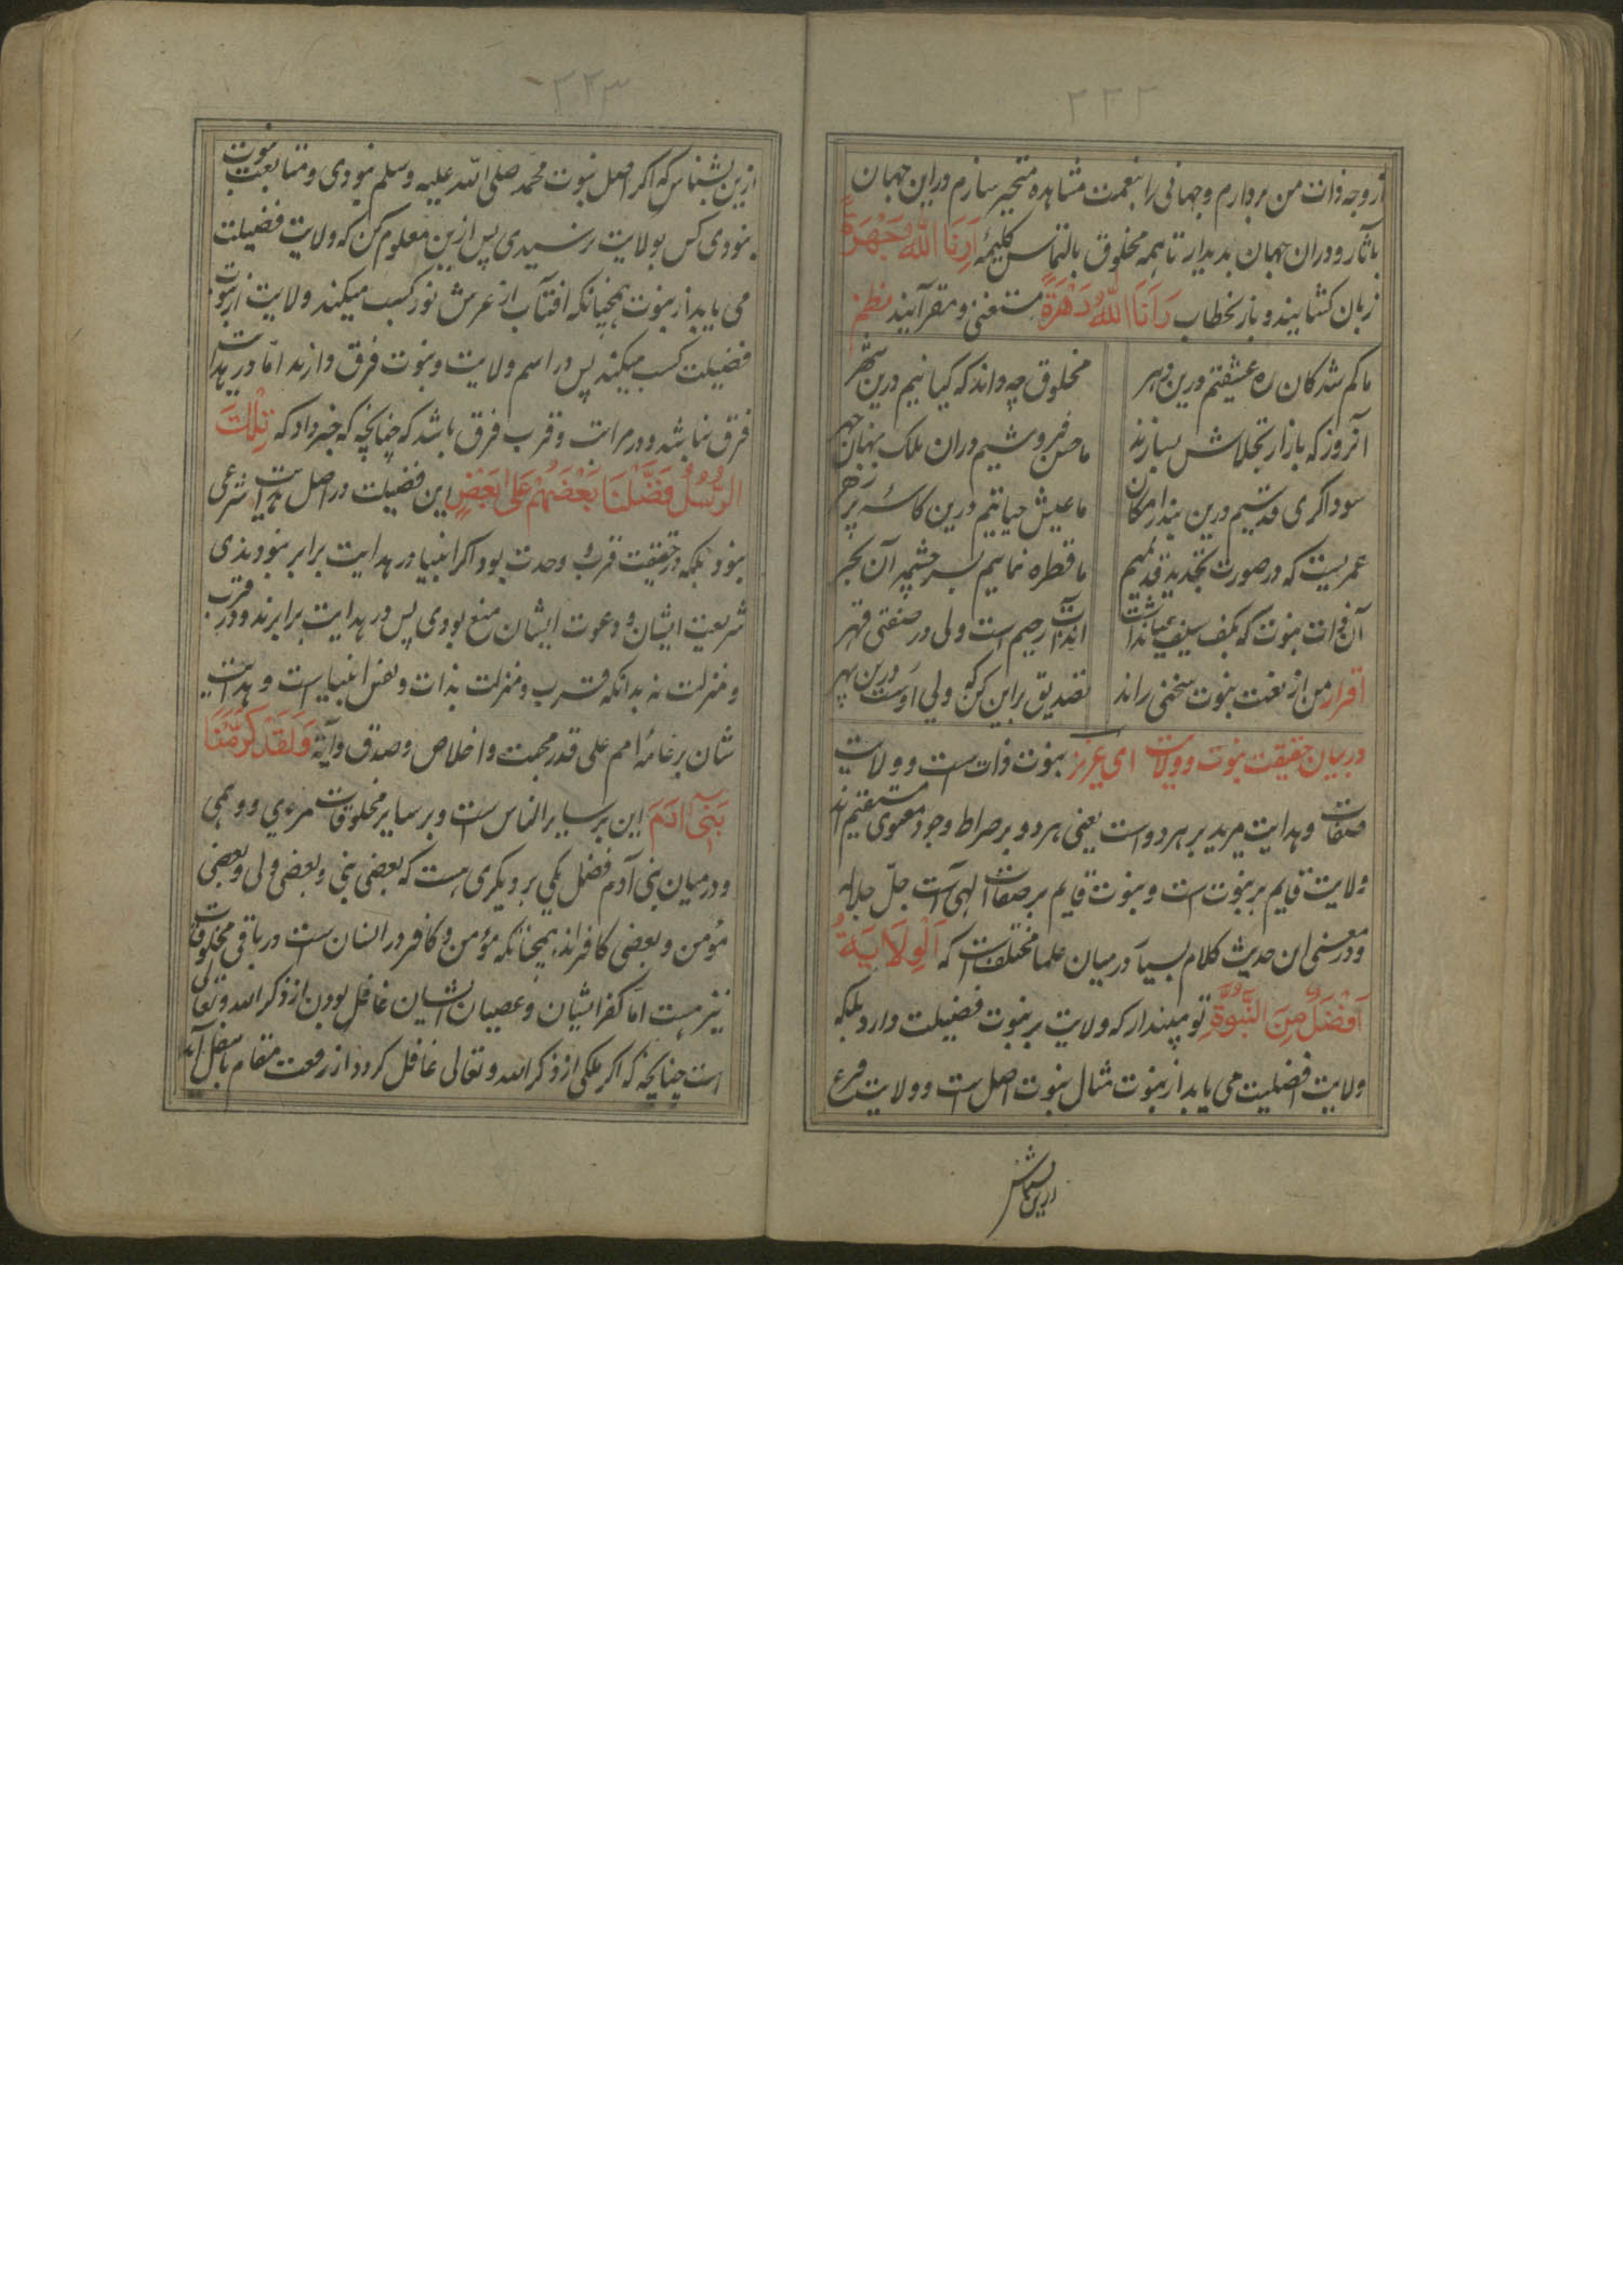 ۲۲۲
از وجه ذات من بردارم و جهانی را بنعمت مشاهده متحیر سازم در این جهان
بآثار و در ان جهان بدیدار تا همه مخلوق بالتماس کلیمهٔ اَرِنَا اللّٰهَ جَهْرَةً
زبان کشایند و باز بخطاب رَاَنَا اللّٰهُ دَهْرَةً مستغنی و مقر آیند نظم
ما کم شدکان ره عشقتم درین دهر مخلوق چه داند که کیانیم درین شهر
آنروز که بازار تجلاش بسازند ما حسن فروشیم دران ملک بنهان جهر
سوداکری قدسیم درین بندر امکان ما عیش حیاتیم درین کاسهٔ پر زهر
عمریست که در صورت تجدید قدیمیم ما قطره نماییم بسرچشمه آن بحر
آن ذات نبوت که بکف سیف عیانداشت رحیم است ولی در صفتی قهر
اقرار من از نعت نبوت سخنی راند تصدیق براین کن که ولی اوست درین بهر
در بیان حقیقت نبوت و ولایت ای عزیز نبوت ذات ست و ولایت
صفات و هدایت مرید بر هر دو است یعنی هر دو بر صراط وجود معنوی مستقیم اند
ولایت قایم بر نبوت ست و نبوت قایم بر صفات الهی است جلّ جلاله
و در معنی ان حدیث کلام بسیار درمیان علما مختلف است که اَلْوِلَایَةُ
اَفْضَلُ مِنَ النُّبُوَّةِ تو مپندار که ولایت بر نبوت فضیلت دارد بلکه
ولایت افضلیت می یابد از نبوت مثال نبوت اصل است و ولایت فرع
ازین بشناس
۲۲۳
ازین بشناس که اکر اصل نبوت محمد صلی الله علیه وسلم نبودی و متابعت نبوت
نبودی کس بولایت نرسیدی پس ازین معلوم کن که ولایت فضیلت
می یابد از نبوت همچنانکه افتاب از عرش نور کسب میکند ولایت از نبوت
فضیلت کسب میکند پس در اسم ولایت و نبوت فرق دارند امّا در هدایت
فرق نباشد و در مراتب و قرب فرق باشد که چنانچه که خبر داد که تِلْكَ
الرُّسُلُ فَضَّلْنَا بَعْضَهُمْ عَلٰی بَعْضٍ این فضیلت در اصل هدایت شرعی
نبود بلکه در حقیقت قرب وحدت بود اکر انبیا در هدایت برابر نبودندی
شریعت ایشان و دعوت ایشان منع بودی پس در هدایت برابرند و در قرب
و منزلت نه بدانکه قرب و منزلت بذات و نفس انبیاست و هدایت
شان بر عامهٔ امم علی قدر محبت و اخلاص و صدق و آیهٔ وَلَقَدْ کَرَّمْنَا
بَنِیٓ اٰدَمَ این بر سایر الناس ست و بر سایر مخلوقات مرءی و وهمی
و درمیان بنی آدم فضل یکی بر دیکری هست که بعضی نبی و بعضی ولی و بعضی
مؤمن و بعضی کافراند همچنانکه مؤمن و کافر در انسان ست در باقی مخلوقات
نیز هست اما کفر ایشان و عصیان ایشان غافل بودن از ذکر الله و تعالی
است چنانچه که اکر ملکی از ذکر الله و تعالی غافل کردد از رفعت مقام باسفل آید